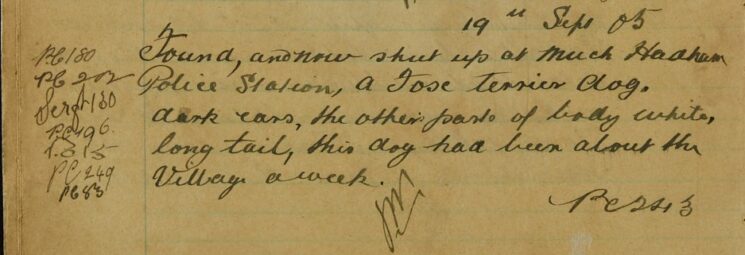 19th Sept 05
Found, and now shut up at Much Hadham
Police Station, a Foxe terrier dog.
dark ears, the other parts of body white,
long tail, this dog had been about the
Village a week.
PC 243
PC 180
PC 202
Sergt 130
PC 96.
PC 249
PC 83